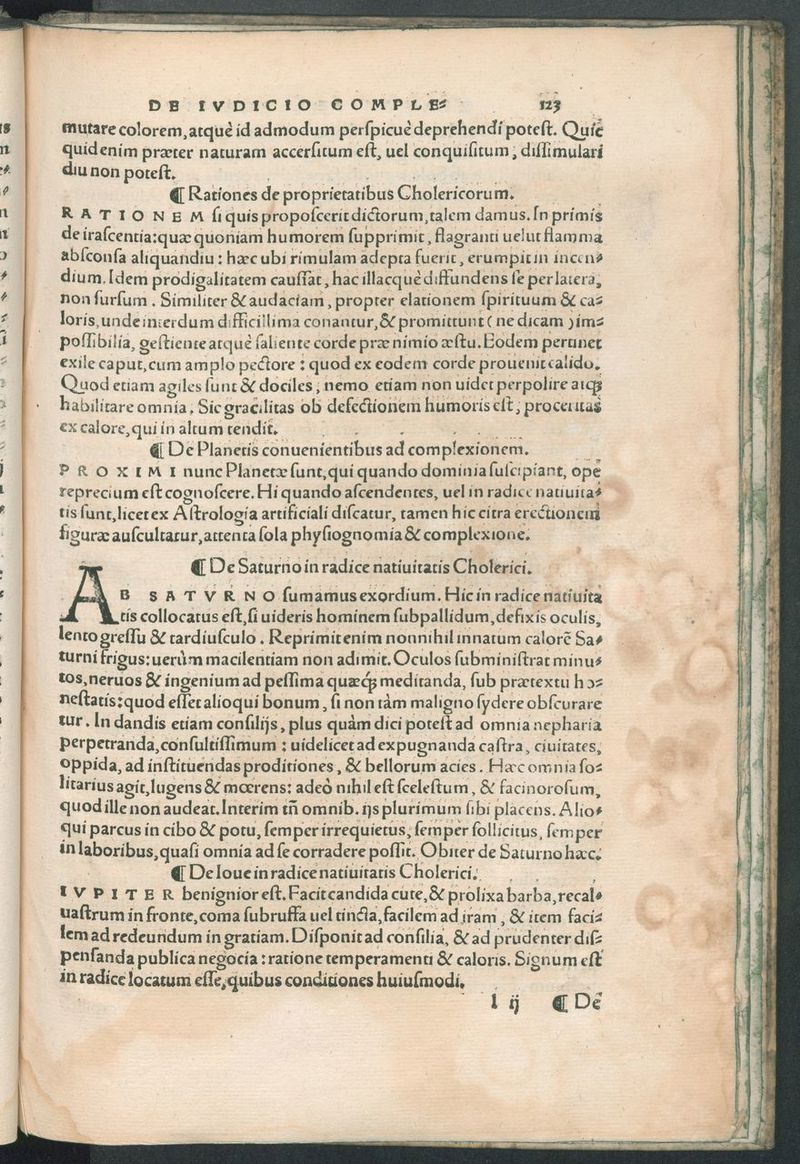 DE IVDICIO COMPLE⸗ 123
mutare colorem, atq́ue id admodum perſpicuè deprehendi poteſt. Quic
quid enim præter naturam accerſitum eſt, uel conquiſitum, diſſimulari
diu non poteſt.
¶ Rationes de proprietatibus Cholericorum.
RATIONEM ſi quis propoſcerit dictorum, talem damus. In primis
de iraſcentia: quæ quoniam humorem ſupprimit, flagranti uelut flamma
abſconſa aliquandiu: hæc ubi rimulam adepta fuerit, erumpit in incen⸗
dium. Idem prodigalitatem cauſſat, hac illacq́ue diffundens ſe per latera,
non ſurſum. Similiter & audaciam, propter elationem ſpirituum & ca⸗
loris, unde interdum difficillima conantur, & promittunt (ne dicam) im⸗
poſſibilia, geſtiente atq́ue ſaliente corde præ nimio æſtu. Eodem pertinet
exile caput, cum amplo pectore: quod ex eodem corde prouenit calido.
Quod etiam agiles ſunt & dociles, nemo etiam non uidet perpolire atq́;
habilitare omnia. Sic gracilitas ob defectionem humoris eſt, proceritas
ex calore, qui in altum tendit.
¶ De Planetis conuenientibus ad complexionem.
PROXIMI nunc Planetæ ſunt, qui quando dominia ſuſcipiant, opę
reprecium eſt cognoſcere. Hi quando aſcendentes, uel in radice natiuita⸗
tis ſunt, licet ex Aſtrologia artificiali diſcatur, tamen hic citra erectionem
figuræ auſcultatur, attenta ſola phyſiognomia & complexione.
¶ De Saturno in radice natiuitatis Cholerici.
AB SATVRNO ſumamus exordium. Hic in radice natiuita
tis collocatus eſt, ſi uideris hominem ſubpallidum, defixis oculis,
lento greſſu & tardiuſculo. Reprimit enim nonnihil innatum calorē Sa⸗
turni frigus: uerùm macilentiam non adimit. Oculos ſubminiſtrat minu⸗
tos, neruos & ingenium ad peſſima quæq́; meditanda, ſub prætextu ho⸗
neſtatis: quod eſſet alioqui bonum, ſi non tàm maligno ſydere obſcurare
tur. In dandis etiam conſilijs, plus quàm dici poteſt ad omnia nepharia
perpetranda, conſultiſſimum: uidelicet ad expugnanda caſtra, ciuitates,
oppida, ad inſtituendas proditiones, & bellorum acies. Hæc omnia ſo⸗
litarius agit, lugens & mœrens: adeò nihil eſt ſceleſtum, & facinoroſum,
quod ille non audeat. Interim tñ omnib. ijs plurimum ſibi placens. Alio⸗
qui parcus in cibo & potu, ſemper irrequietus, ſemper ſollicitus, ſemper
in laboribus, quaſi omnia ad ſe corradere poſſit. Obiter de Saturno hæc.
¶ De Ioue in radice natiuitatis Cholerici.
IVPITER benignior eſt. Facit candida cute, & prolixa barba, recal⸗
uaſtrum in fronte, coma ſubruffa uel tincta, facilem ad iram, & item faci⸗
lem ad redeundum in gratiam. Diſponit ad conſilia, & ad prudenter diſ⸗
penſanda publica negocia: ratione temperamenti & caloris. Signum eſt
in radice locatum eſſe, quibus conditiones huiuſmodi.
l ij ¶ De